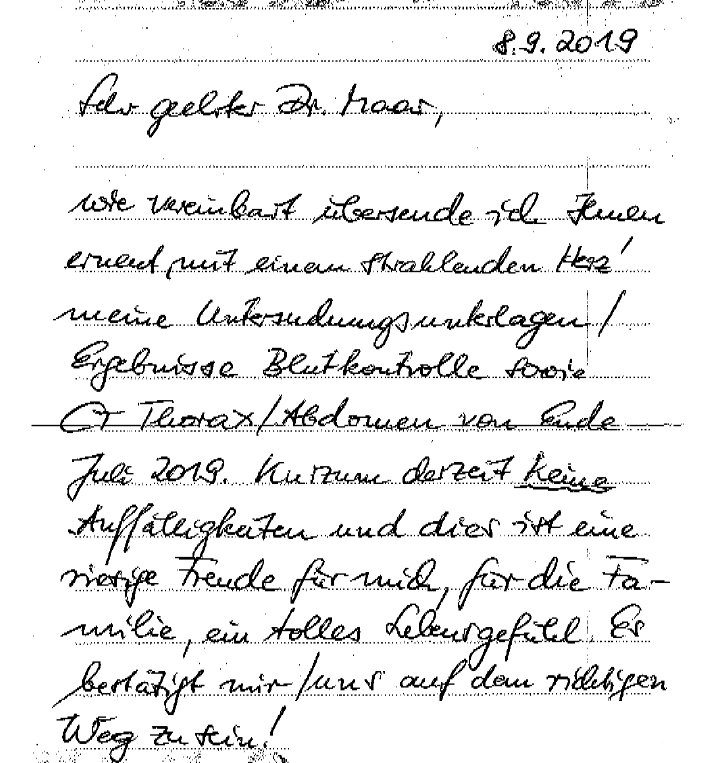 8.9.2019
Sehr geehrter Dr. Maar,
wie vereinbart übersende ich Ihnen
erneut, mit einem strahlenden Herz!
meine Untersuchungsunterlagen /
Ergebnisse Blutkontrolle sowie
CT Thorax/Abdomen von Ende
Juli 2019. Kurzum derzeit keine
Auffälligkeiten und dies ist eine
riesige Freude für mich, für die Fa-
milie, ein tolles Lebensgefühl. Es
bestätigt mir/uns auf dem richtigen
Weg zu sein!